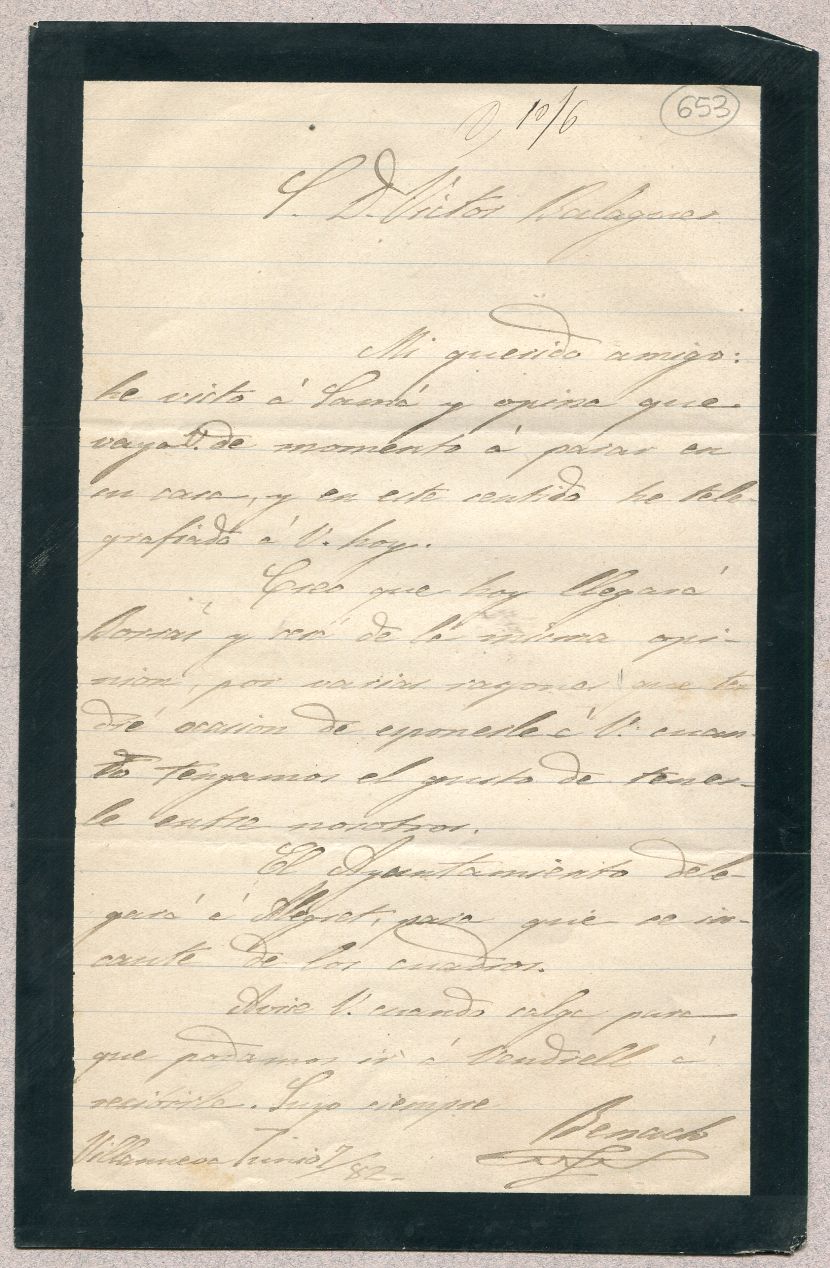 10/6
653
S. D. Victor Balaguer
Mi querido amigo:
he visto á Samá y opina que
vaya V. de momento á parar en
su casa, y en este sentido he tele-
grafiado á V. hoy.
Creo que hoy llegará
Borrás y será de la misma opi-
nion, por varias razones que ten
dré ocasion de esponerle á V. cuan
do tengamos el gusto de tener-
le entre nosotros.
El Ayuntamiento dele-
gará á Alegret, para que se in-
caute de los cuadros.
Avise V. cuando salga para
que podamos ir á Vendrell á
recibirle. Suyo siempre
Benach
Villanueva Junio 7/82-